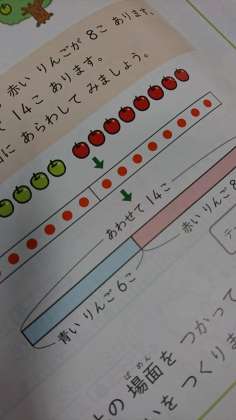 赤い りんごが 8こ あります。
て 14こ あります。
に あらわして みましょう。
あわせて 14こ
赤い りんご 8
青い りんご 6こ
の 場面を つかって
ばめん
を つくり